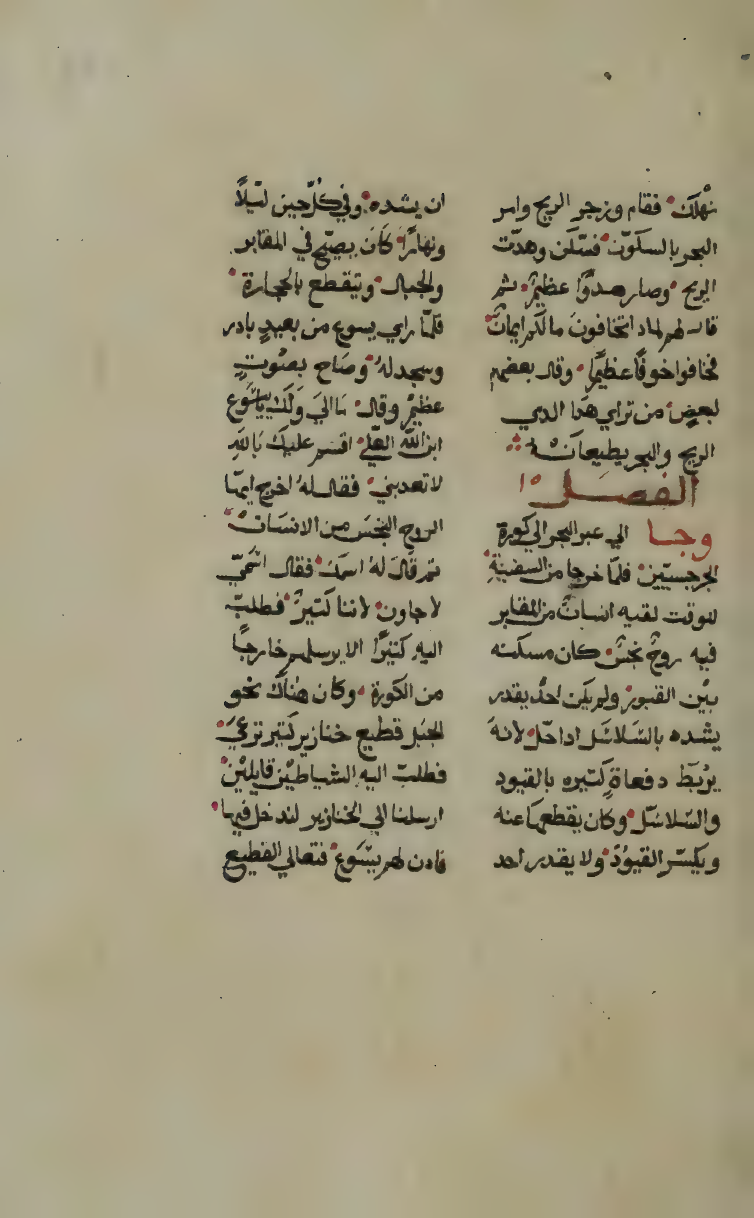 نهلك فقام وزجر الريح وامر
البحر بالسكوت فسكن وهدت
الريح وصار هدوًا عظيمٌ ثم
قال لهم لماذا تخافون ما لكم ايمانٌ
فخافوا خوفًا عظيمًا وقال بعضهم
لبعض من تراي هذا الدي
الريح والبحر يطيعانه
الفصل ١٥
وجا الي عبر البحر الي كورة
الجرجسيّين فلمّا خرجا من السفينةِ
للوقت لقيه انسانٌ من المقابر
فيه روحٌ نجسٌ كان مسكنه
بيْن القبور ولم يكن احدٌ يقدر
يشده بالسّلاسل اداخل لانهَ
يُربَط دفعاة كتيره بالقيود
والسّلاسل وكان يقطعها عنه
ويكسّر القيوُدَ ولا يقدر احد
ان يشده وفي كُلّ حين لَيلًا
ونهارًا كانَ يصيّح في المقابر
والجبال ويتقطع بالحجارة
فلمّا راي يسوع من بعيدٍ بادر
وسجد لهُ وصَاح بصَوتٍ
عظيمٌ وقال مَا اليَ وَلَكَ يايسَوع
ابن اللّه العّلي اقسم عليكَ باللّهِ
لا تعدبني فقال له اخرج ايها
الروح النجسَ من الانسانَ
تم قالَ لهُ اسمك فقال اسمّي
لاجاون لاننا كتيرٌ فطلبَ
اليهِ كتيرًا الا يرسلهم خارجًا
من الكورة وكان هُناكَ نحو
الجبَل قطيع خنازير كَتير ترعيَ
فطلبَ اليه الشياطيْن قايليْن
ارسلنا الي الخنازير لندخل فيها
فادن لهم يسَوع فتعالي القطيع